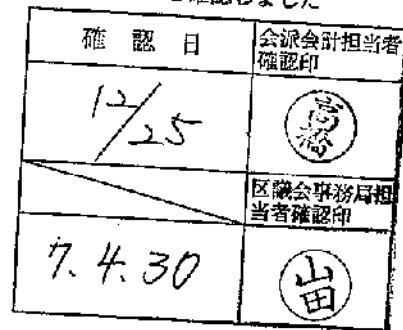 確認しました
確認日
会派会計担当者
確認印
12/25
高橋
区議会事務局担
当者確認印
7.4.30
山田